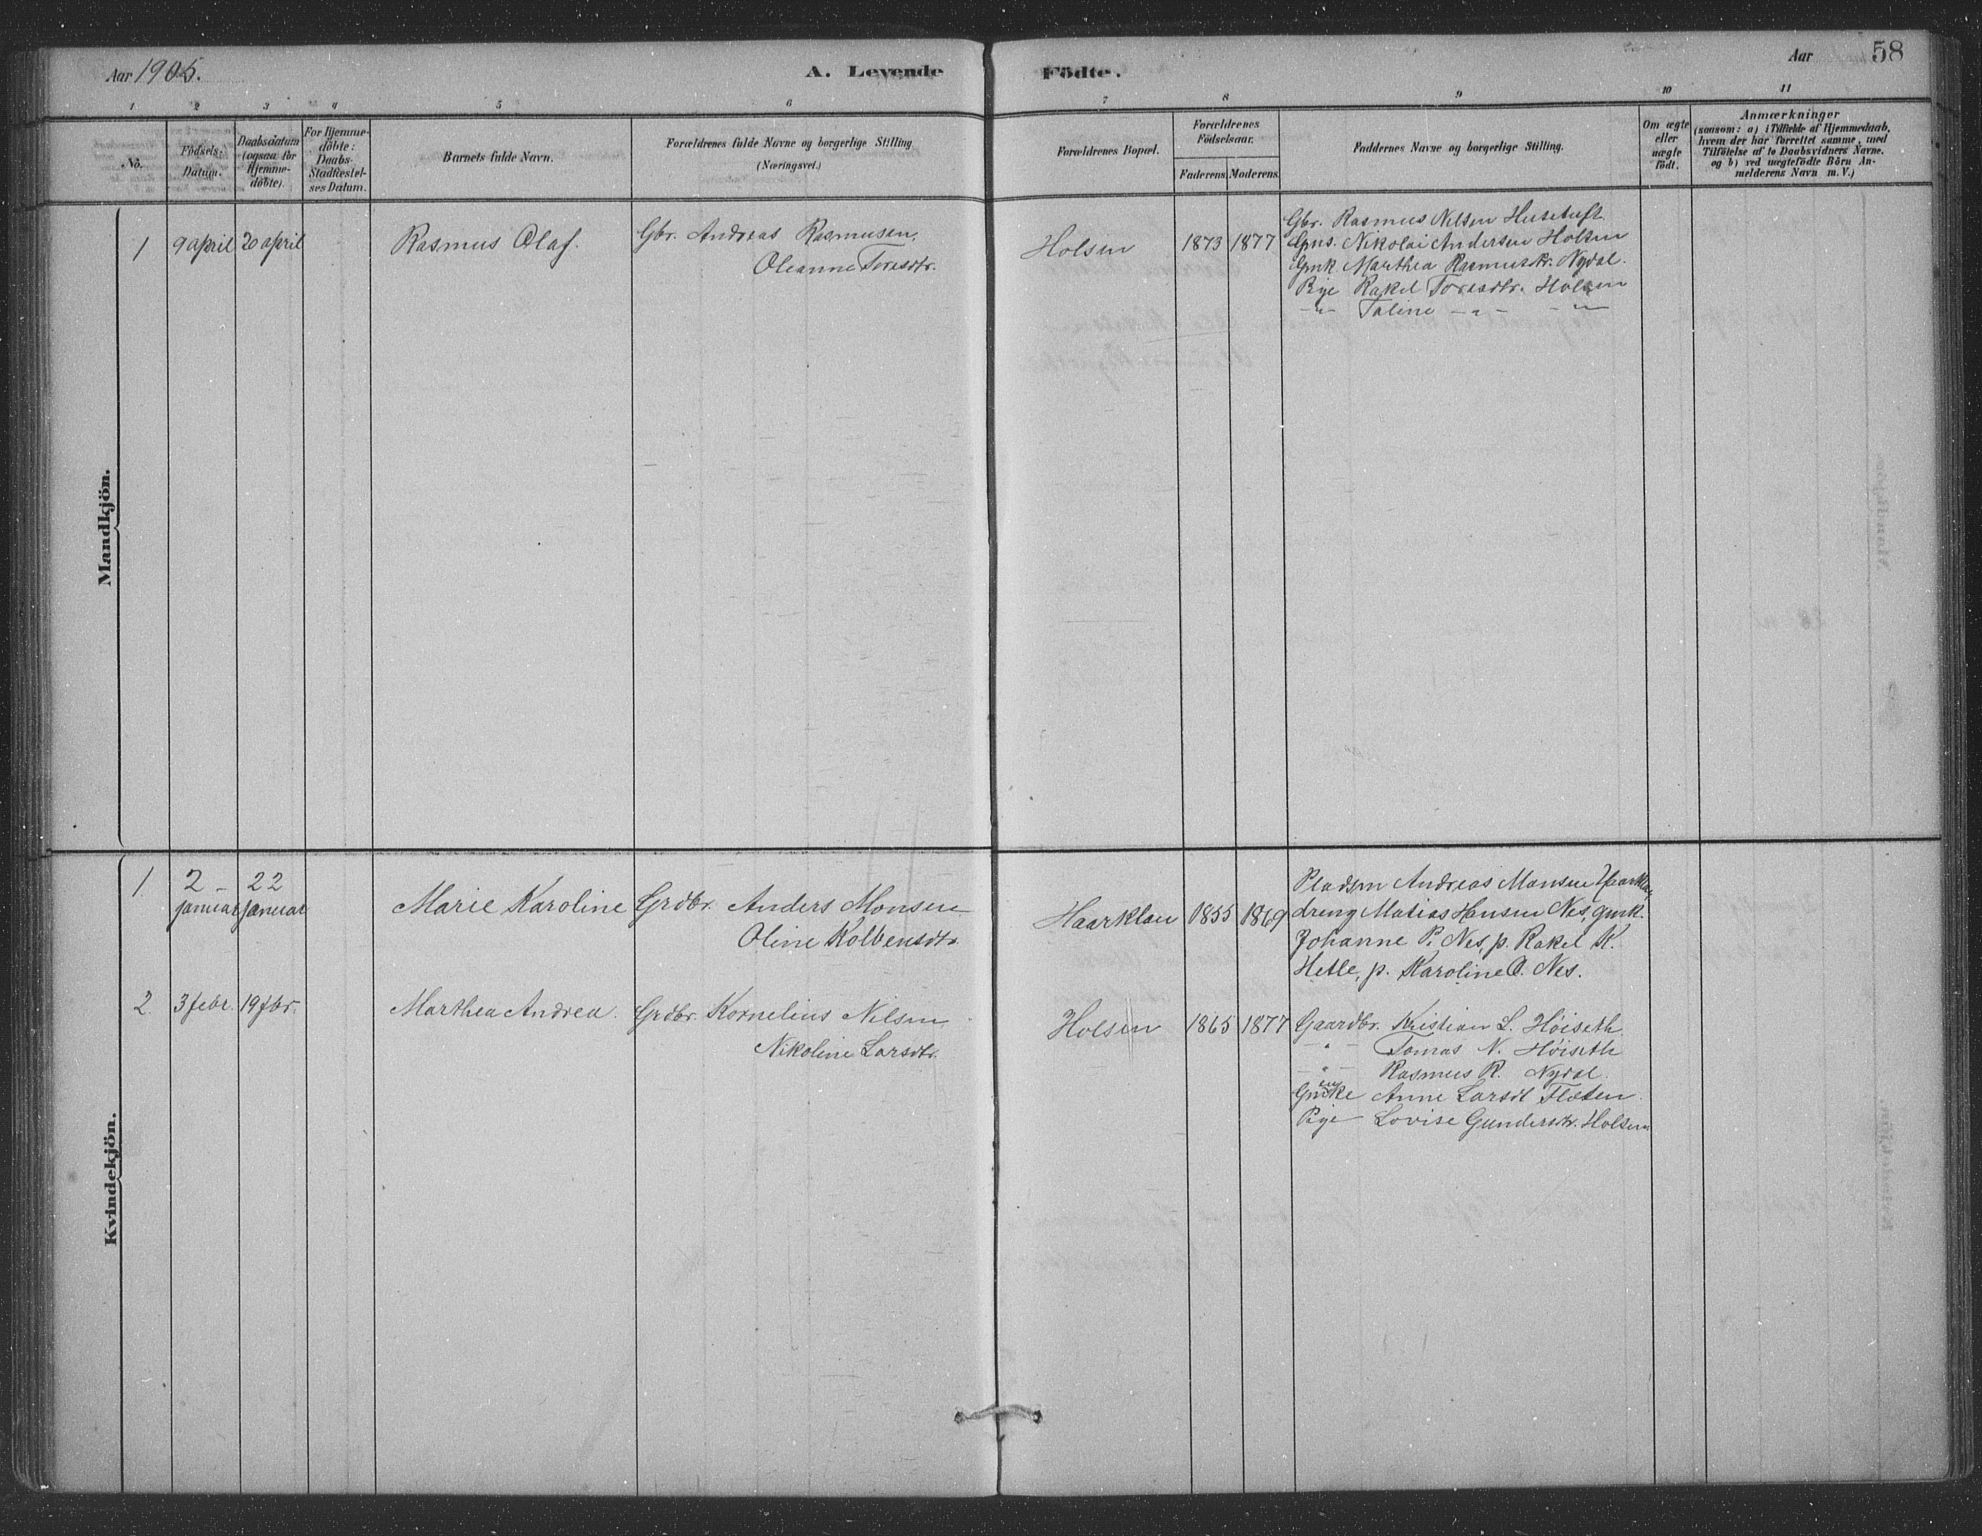 Aar 1905. A. Levende Födte. Aar 58
1 2 3 4 5 6 7 8 9 10 11
No.
Födsels-
Datum.
Daabsdatum
(ogsaa for
Hjemme-
döbte).
For Hjemme-
döbte:
Daabs-
Stadfæstel-
ses Datum.
Barnets fulde Navn.
Forældrenes fulde Navne og borgerlige Stilling
(Næringsvei.)
Forældrenes Bopæl.
Forældrenes
Födselsaar.
Faderens. Moderens.
Faddernes Navne og borgerlige Stilling.
Om ægte
eller
uægte
födt.
Anmærkninger
(saasom: a) i Tilfælde af Hjemmedaab,
hvem der har forrettet samme, med
Tilföielse af to Daabsvidners Navne.
og b) ved uægtefödte Börn An-
melderens Navn m. V.)
Mandkjön.
1 9 april 20 april Rasmus Olaf. Gbr. Andreas Rasmusen.
Oleanne Toresdtr.
Holsen 1873 1877
Gbr. Rasmus Nilsen Husetuft
Gms. Nikolai Andersen Holsen
Gmk Marthea Rasmusdtr. Nydal.
Pige Rakel Toresdtr. Holsen
-"- Taline -"- -"-
Kvindekjön.
1 2 - 22
januar januar
Marie Karoline Grdbr. Anders Monsen
Oline Kolbensdtr.
Haarklau 1855 1869
Pladsm Andreas Monsen Haarklau
dreng Matias Hansen Nes, gmk.
Johanne P. Nes, p. Rakel K.
Hetle, p. Karoline O. Nes.
2 3 febr. 19 fbr. Marthea Andrea. Grdbr. Kornelius Nilsen
Nikoline Larsdtr.
Holsen 1865 1877
Gaardbr. Kristian L. Höiseth
-"- Tomas N. Höiseth
-"- Rasmus R. Nydal.
Anne Larsdt Flæten.
Pige Lovise Gundersdtr. Holsen